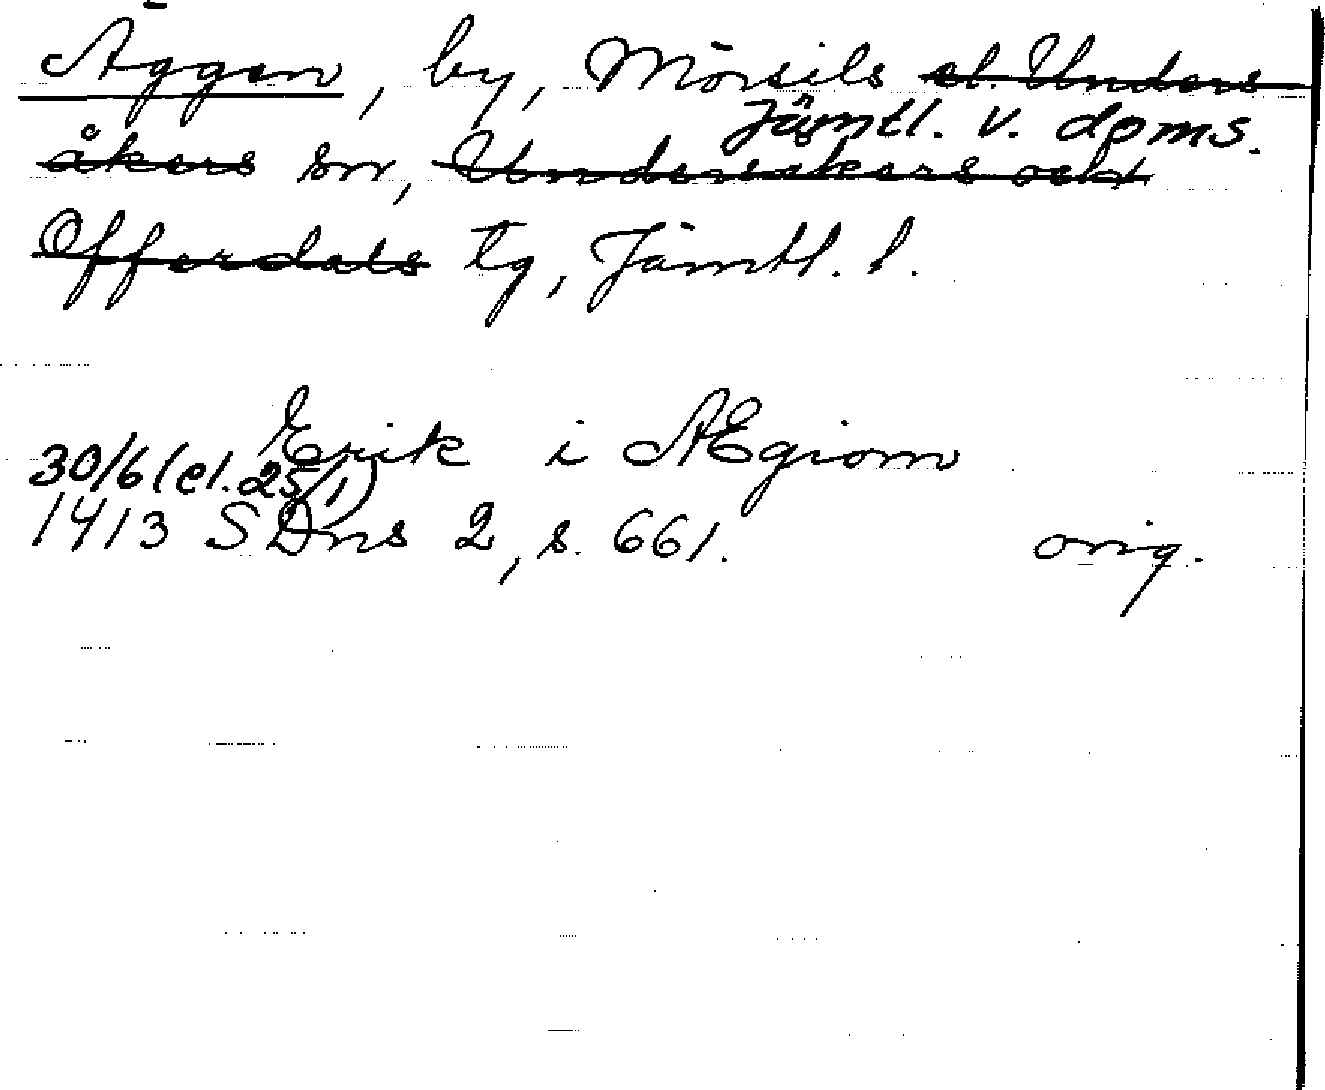 Äggen, by, Mörsils el. Unders
Jämtl. v. dpms.
åkers sn, Undersåkers och
Offerdals tg, Jämtl. l.
Erik i Ægiom
30/6 (el. 25/1)
1413 SDns 2, s. 661. orig.